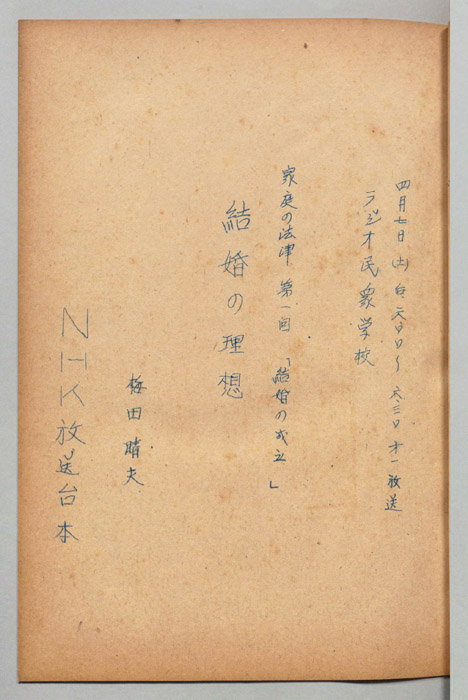 四月七日(土)後、六・〇〇〜六・三〇 才一放送
ラジオ民衆学校
家庭の法律 第一回 「結婚の成立」
結婚の理想
梅田晴夫
NHK放送台本